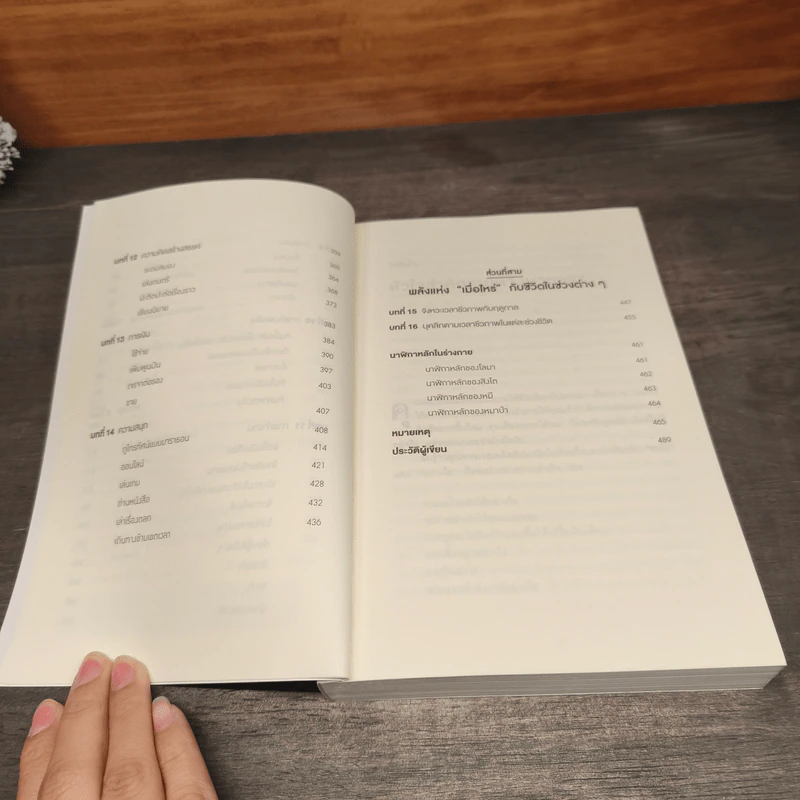 บทที่ 12 ความคิดสร้างสรรค์ 359
ระดมสมอง 360
เล่นดนตรี 364
นึกไอเดียเรื่องราว 368
เขียนนิยาย 373
บทที่ 13 การเงิน 383
ใช้จ่าย 384
เพิ่มพูนเงิน 390
ตกลงต่อรอง 397
ขาย 403
บทที่ 14 ความสนุก 407
ดูโทรทัศน์แบบมาราธอน 408
ออนไลน์ 414
เล่นเกม 421
อ่านหนังสือ 428
เล่าเรื่องตลก 432
เดินทางข้ามเขตเวลา 436
ส่วนที่สาม
พลังแห่ง "เมื่อไหร่" กับชีวิตในช่วงต่าง ๆ
บทที่ 15 จังหวะเวลาชีวภาพกับฤดูกาล 447
บทที่ 16 บุคลิกตามเวลาชีวภาพในแต่ละช่วงชีวิต 455
นาฬิกาหลักในร่างกาย 461
นาฬิกาหลักของโลมา 461
นาฬิกาหลักของสิงโต 462
นาฬิกาหลักของหมี 463
นาฬิกาหลักของหมาป่า 464
หมายเหตุ 465
ประวัติผู้เขียน 489